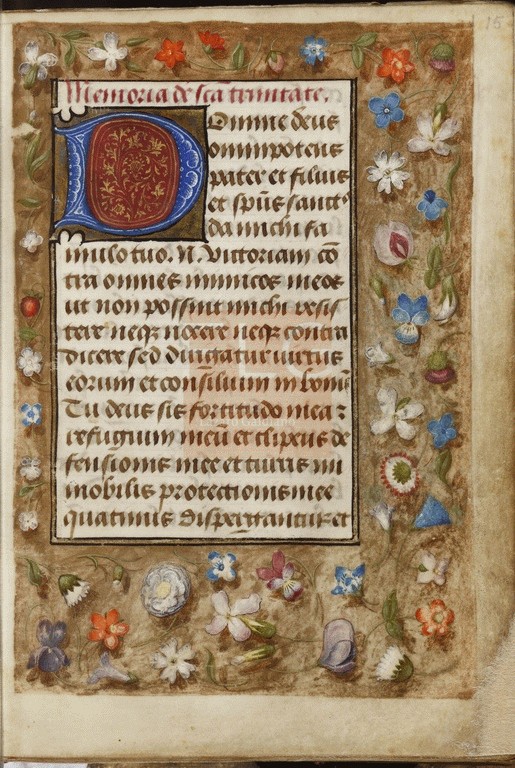 15
Memoria de sca trinitate.
Domine deus
omnipotens
pater et filius
et spūs sanct⁹
da michi fa
mulo tuo .N. Victoriam cō
tra omnes inimicos meos
ut non possint michi resis
tere neqꝫ nocere neqꝫ contra
dicere sed dirigatur virtus
eorum et consilium in bonū
Tu deus sis fortitudo mea :
refugium meū et clipeus de
fensionis mee et turris im
mobilis protectionis mee
quatinus dispergantur et